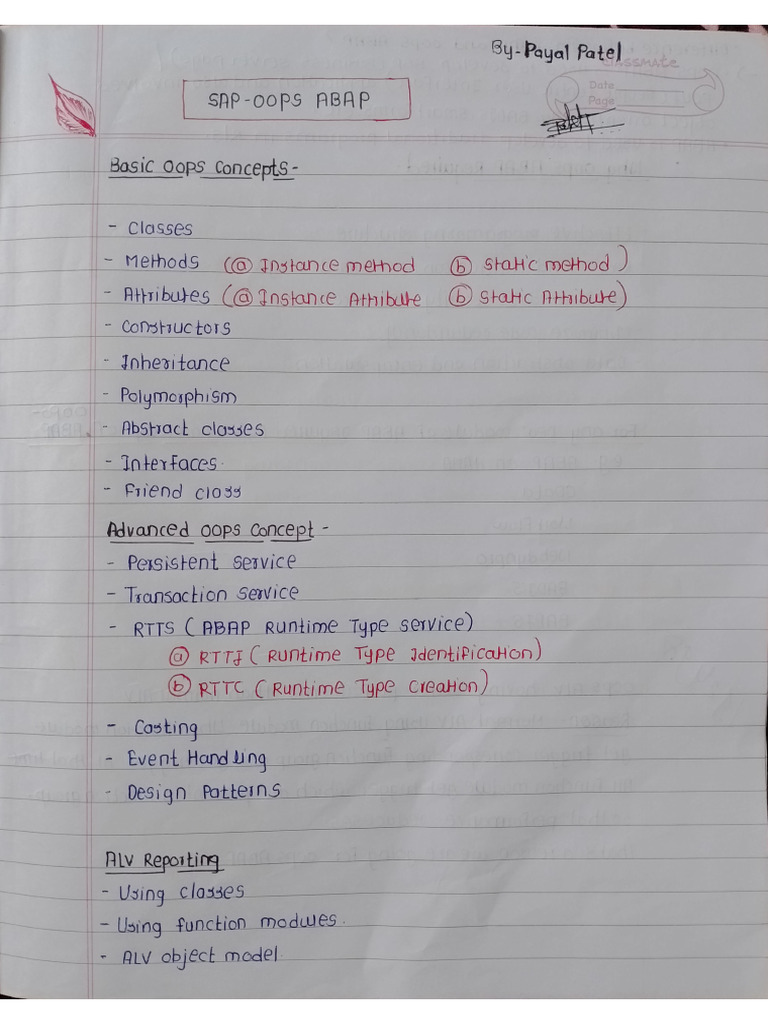 By-Payal Patel
classmate
Date
Page
SAP-OOPS ABAP
Basic OOPS Concepts-
- Classes
- Methods (ⓐ Instance method ⓑ static method)
- Attributes (ⓐ Instance Attribute ⓑ Static Attribute)
- Constructors
- Inheritance
- Polymorphism
- Abstract classes
- Interfaces.
- Friend class
Advanced OOPS Concept-
- Persistent service
- Transaction service
- RTTS (ABAP Runtime Type Service)
ⓐ RTTI (Runtime Type Identification)
ⓑ RTTC (Runtime Type Creation)
- Casting
- Event Handling
- Design Patterns
ALV Reporting
- Using classes
- Using function modules.
- ALV object model.